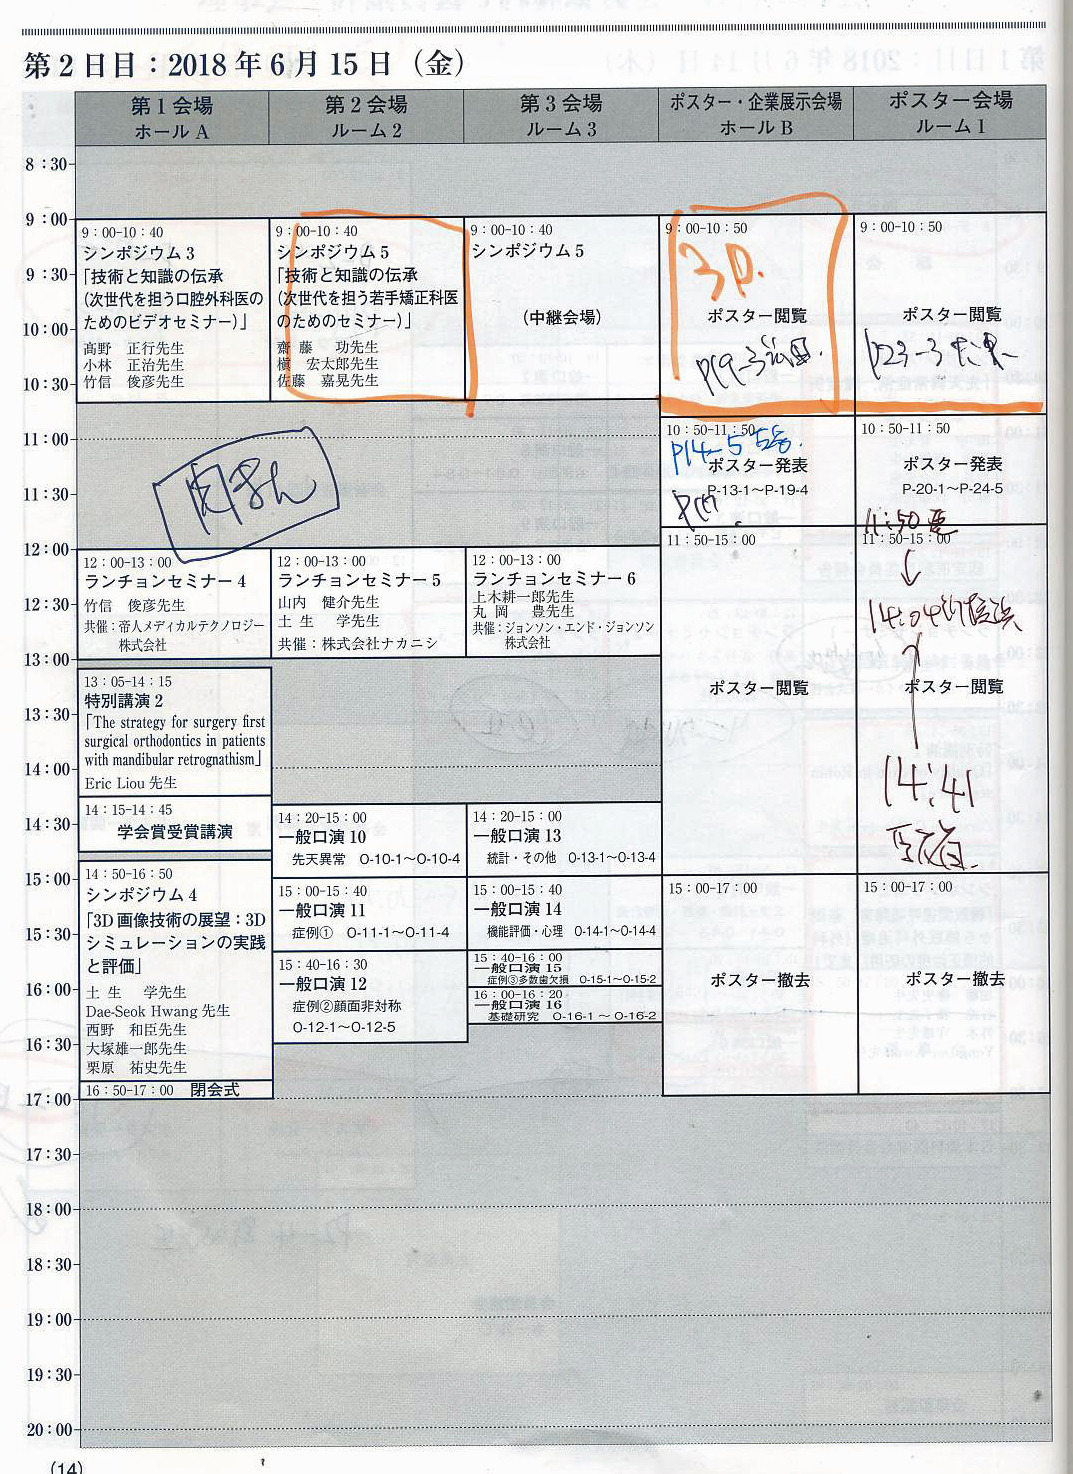 第2日目：2018年6月15日（金）
第1会場
ホールA
第2会場
ルーム2
第3会場
ルーム3
ポスター・企業展示会場
ホールB
ポスター会場
ルーム1
8：30
9：00
9：30
10：00
10：30
11：00
11：30
12：00
12：30
13：00
13：30
14：00
14：30
15：00
15：30
16：00
16：30
17：00
17：30
18：00
18：30
19：00
19：30
20：00
9：00-10：40
シンポジウム3
「技術と知識の伝承
（次世代を担う口腔外科医の
ためのビデオセミナー）」
髙野　正行先生
小林　正治先生
竹信　俊彦先生
9：00-10：40
シンポジウム5
「技術と知識の伝承
（次世代を担う若手矯正科医
のためのセミナー）」
齋藤　功先生
槇　宏太郎先生
佐藤　嘉晃先生
9：00-10：40
シンポジウム5
（中継会場）
9：00-10：50
3P.
ポスター閲覧
P19-3
9：00-10：50
ポスター閲覧
P23-3
10：50-11：50
P14-5
ポスター発表
P-13-1～P-19-4
10：50-11：50
ポスター発表
P-20-1～P-24-5
11:50
12：00-13：00
ランチョンセミナー4
竹信　俊彦先生
共催：帝人メディカルテクノロジー
株式会社
12：00-13：00
ランチョンセミナー5
山内　健介先生
土生　学先生
共催：株式会社ナカニシ
12：00-13：00
ランチョンセミナー6
上木耕一郎先生
丸岡　豊先生
共催：ジョンソン・エンド・ジョンソン
株式会社
11：50-15：00
ポスター閲覧
11：50-15：00
14:04
ポスター閲覧
14:41
13：05-14：15
特別講演2
「The strategy for surgery first
surgical orthodontics in patients
with mandibular retrognathism」
Eric Liou 先生
14：15-14：45
学会賞受賞講演
14：50-16：50
シンポジウム4
「3D画像技術の展望：3D
シミュレーションの実践
と評価」
土生　学先生
Dae-Seok Hwang 先生
西野　和臣先生
大塚雄一郎先生
栗原　祐史先生
16：50-17：00　閉会式
14：20-15：00
一般口演10
先天異常　O-10-1～O-10-4
15：00-15：40
一般口演11
症例①　O-11-1～O-11-4
15：40-16：30
一般口演12
症例②顔面非対称
O-12-1～O-12-5
14：20-15：00
一般口演13
統計・その他　O-13-1～O-13-4
15：00-15：40
一般口演14
機能評価・心理　O-14-1～O-14-4
15：40-16：00
一般口演15
症例③多数歯欠損　O-15-1～O-15-2
16：00-16：20
一般口演16
基礎研究　O-16-1～O-16-2
15：00-17：00
ポスター撤去
15：00-17：00
ポスター撤去
（14）